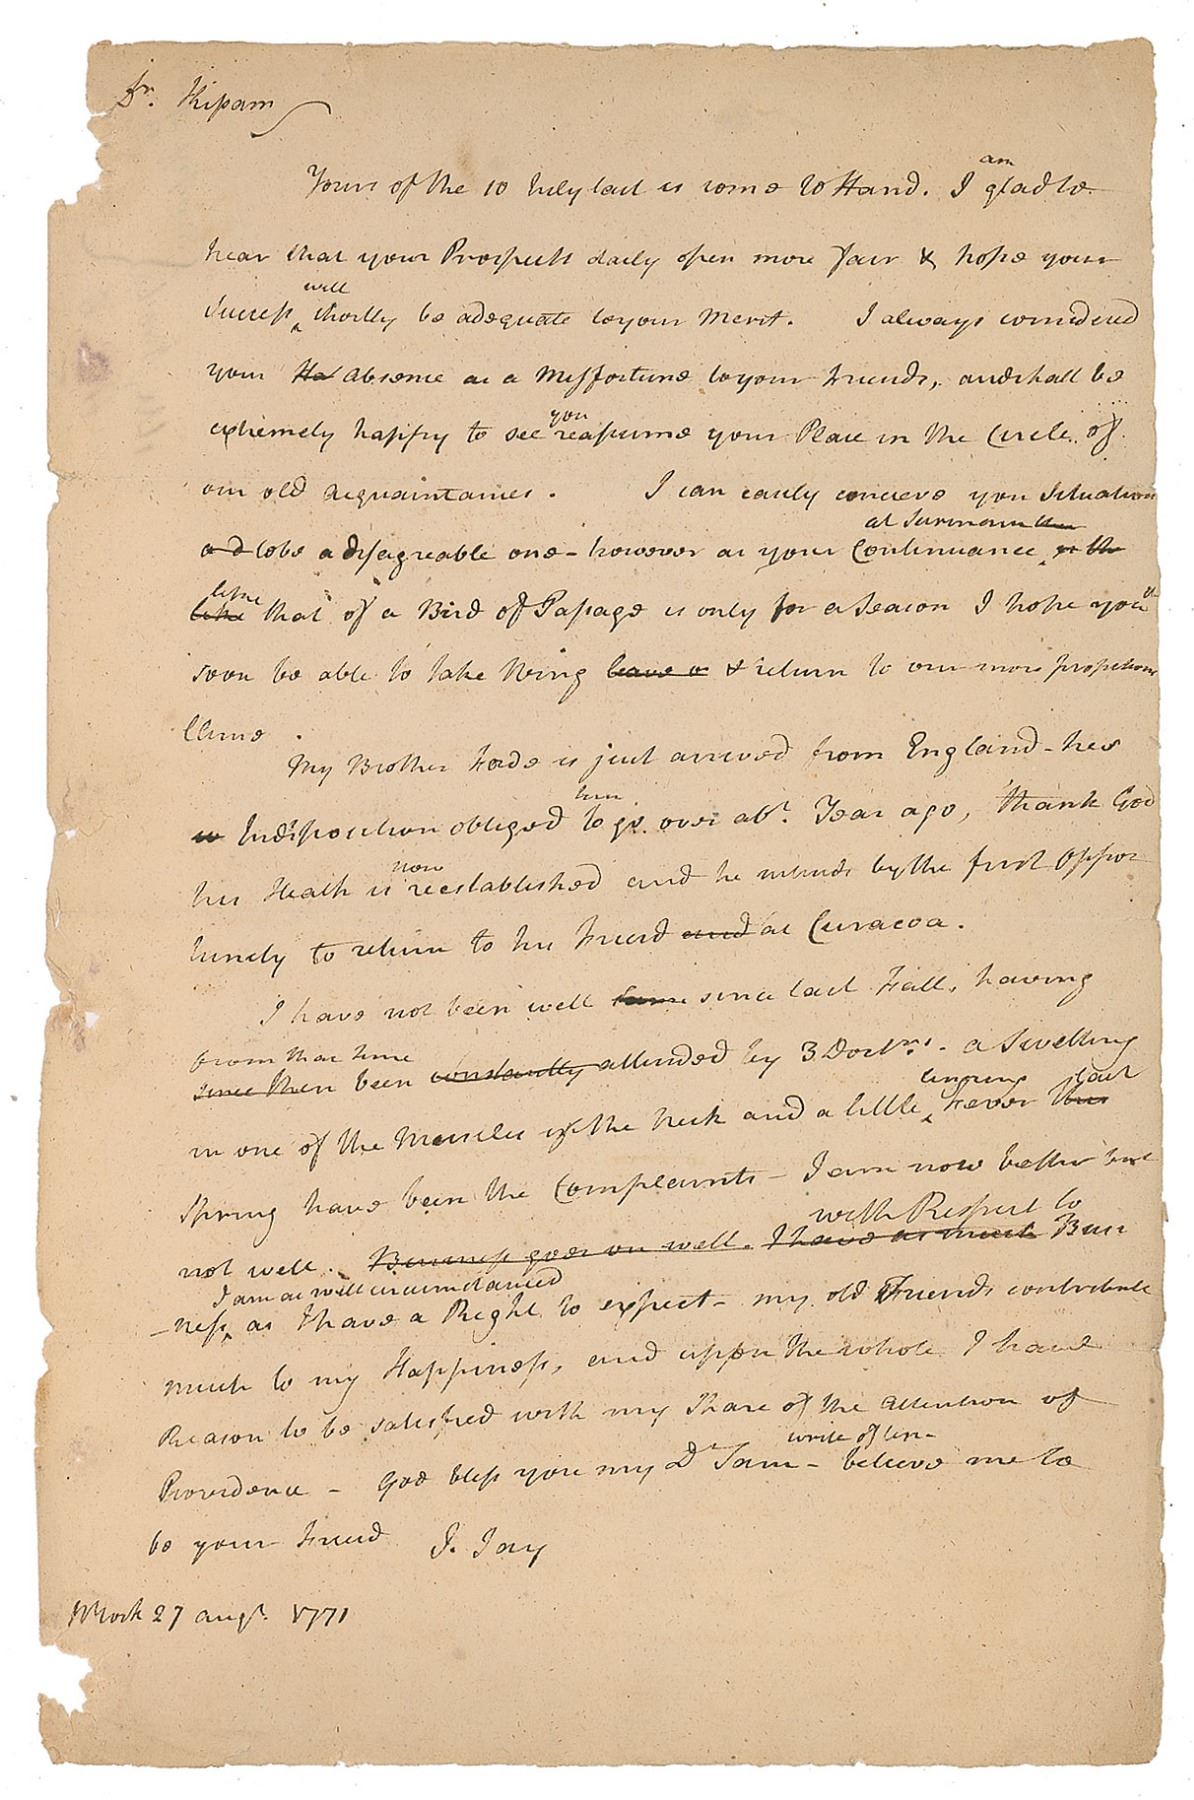 Dr. Kissam
am
Yours of the 10 July last is come to Hand. I glad to
hear that your Prospects daily open more fair & hope your
will
Success shortly be adequate to your Merit. I always considered
your Ha Absence as a Missfortune to your Friends, and shall be
you
extremely happy to see reassume your Place in the Circle of
our old acquaintances. I can easily conceve you Situation
at Surinam
a d to be a disagreable one - however as your Continuance or the
like
like that of a Bird of Passage is only for a Season I hope youll
soon be able to take Wing leave or & return to our more propitious
Clime.
My Brother Fade is just arrived from England - his
him
Indisposition obliged to go over abt. Year ago, thank God
now
his Health is reestablished and he intends by the first Oppor
tunely to return to his Friend and at Curacoa.
I have not been well since last Fall, having
from that time
since then been constantly attended by 3 Doctrs. - a Swelling
last
in one of the Muscles of the Neck and a little Fever this
Spring have been the Complaints - I am now better but
with Respect to
not well. Business goes on well. I have as much Busi
I am as well circumstanced
-ness as I have a Right to expect - my old Friends contribute
much to my Happiness, and upon the whole I have
Reason to be satisfied with my Share of the attention of
write often -
Providence - God bless you my Dr Sam - believe me to
be your Friend J. Jay
NYork 27 augt. 1771